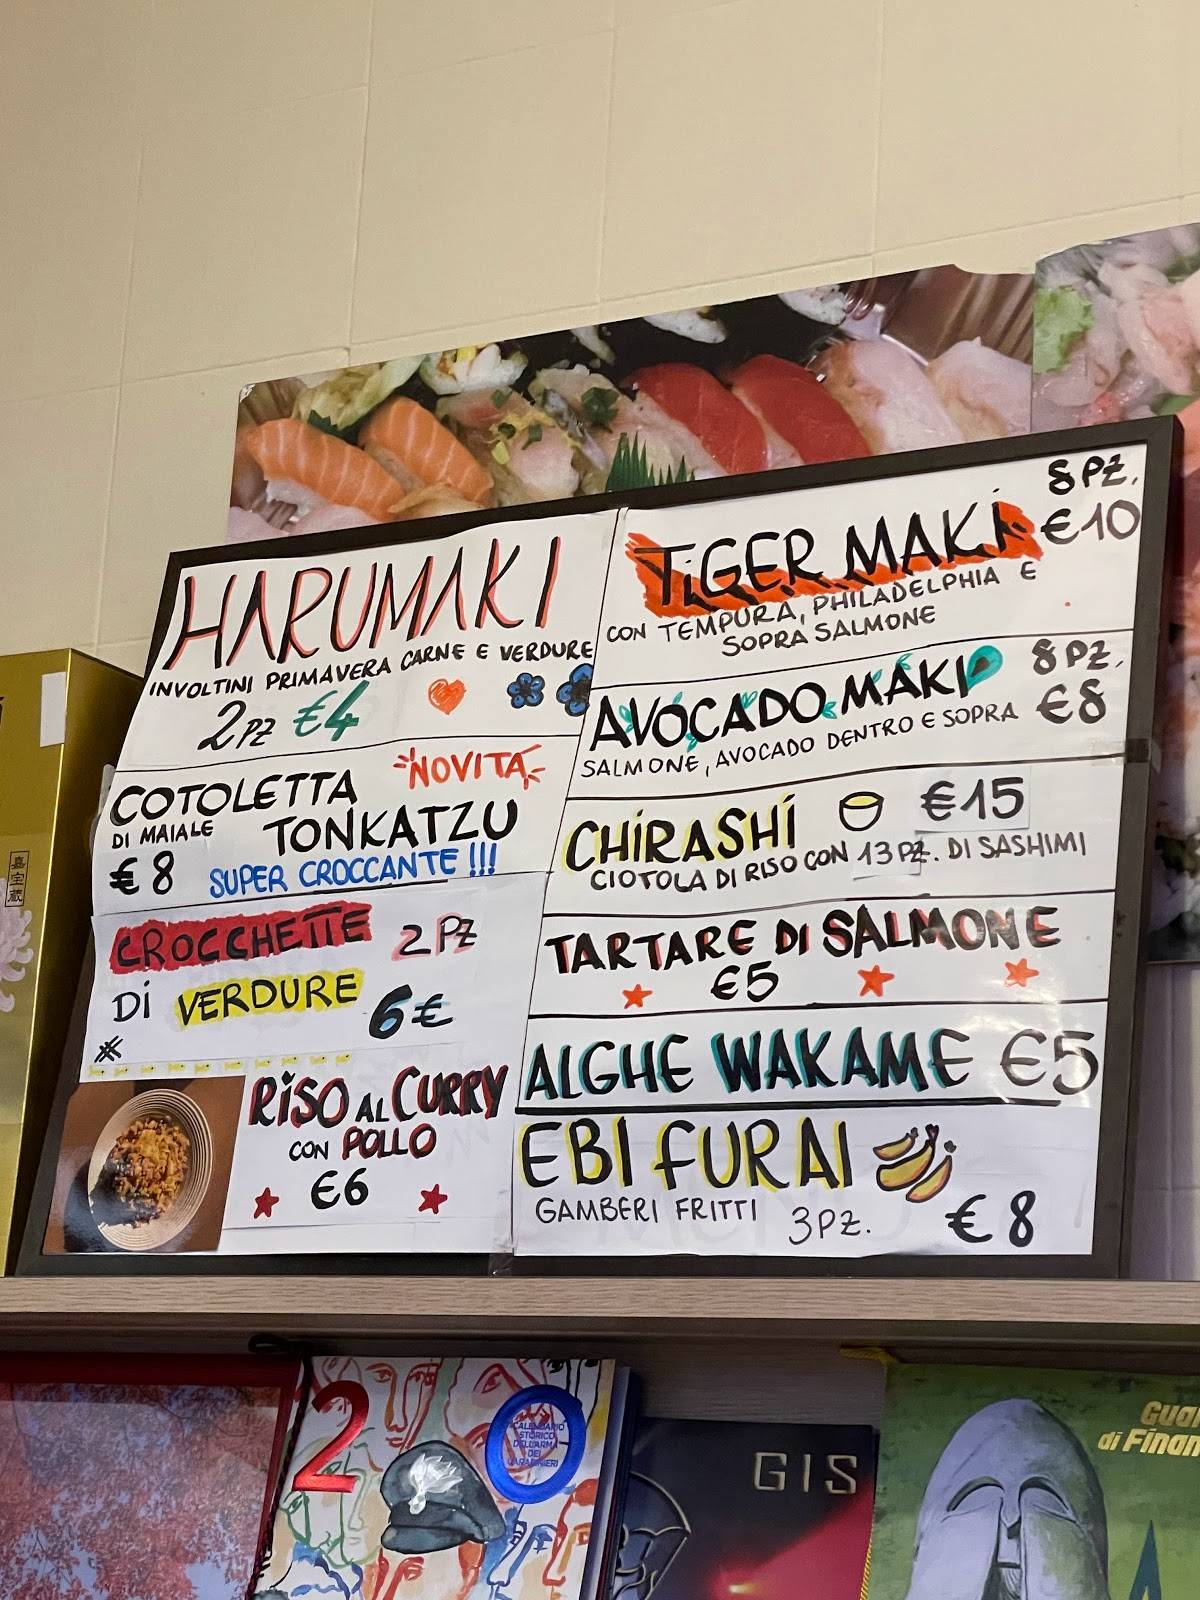 HARUMAKI
INVOLTINI PRIMAVERA CARNE E VERDURE
2PZ €4
NOVITÀ
COTOLETTA
DI MAIALE TONKATZU
€8 SUPER CROCCANTE!!!
CROCCHETTE 2PZ
Di VERDURE 6€
RiSO AL CURRY
CON POLLO
€6
8PZ.
TiGER MAKi €10
CON TEMPURA, PHILADELPHIA E
SOPRA SALMONE
8PZ.
AVOCADO MAKI €8
SALMONE, AVOCADO DENTRO E SOPRA
CHiRASHi €15
CIOTOLA DI RISO CON 13PZ. DI SASHIMI
TARTARE Di SALMONE
€5
ALGHE WAKAME €5
EBI FURAI
GAMBERI FRITTI 3PZ. €8
嘉宝蔵
20
CALENDARIO
STORICO
DELL'ARMA
DEI
CARABINIERI
GIS
Gua
di Finan